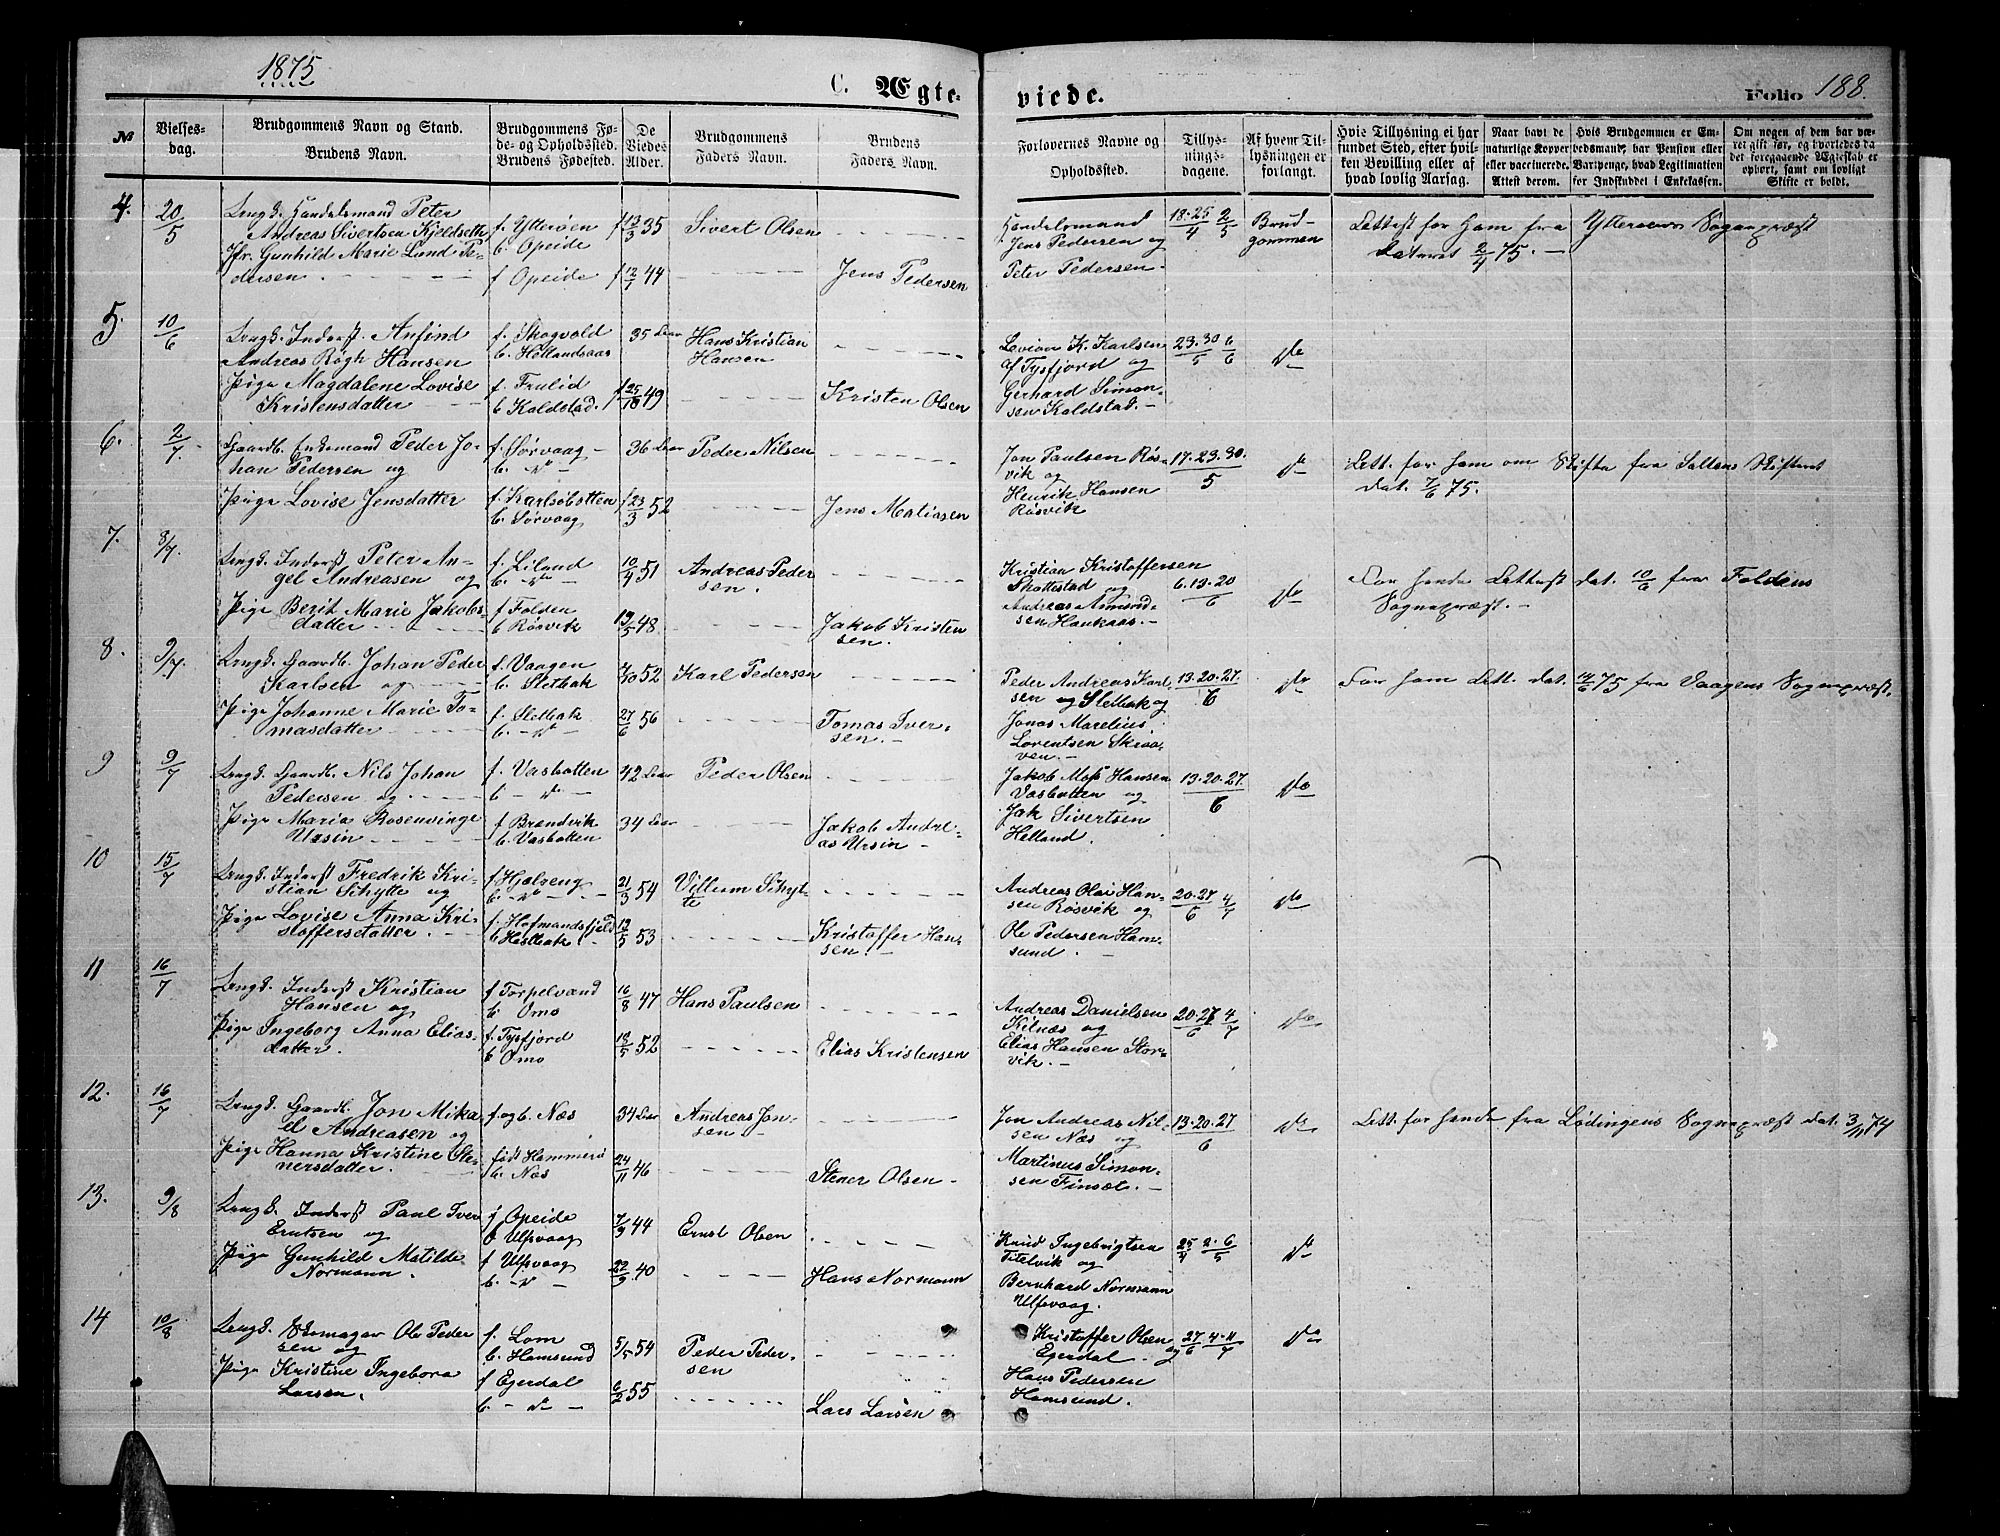 1875
C. Ægte-
viede.
Folio 188.
№
Vielses-
dag.
Brudgommens Navn og Stand.
Brudens Navn.
Brudgommens Fø-
de- og Opholdssted.
Brudens Fødested.
De
Viedes
Alder.
Brudgommens
Faders Navn.
Brudens
Faders Navn.
Forlovernes Navne og
Opholdssted.
Tillys-
nings-
dagene.
Af hvem Til-
lysningen er
forlangt.
Hvis Tillysning ei har
fundet Sted, efter hvil-
ken Bevilling eller af
hvad lovlig Aarsag.
Naar havt de
naturlige Kopper
eller vaccinerede.
Attest derom.
Hvis Brudgommen er Em-
bedsmand, har Pension eller
Vartpenge, hvad Legitimation
for Indskuddet i Enkekassen.
Om nogen af dem har væ-
ret gift før, og hvorledes da
det foregaaende Ægteskab er
ophørt, samt om lovligt
Skifte er holdt.
4. 20/5
Ungk. Handelsmand Peter
Andreas Sivertsen Kjeldseth
Jfr. Gunhild Marie Lund Pe-
dersen.
f. Ytterøen
b. Opeide
f Opeide
f 13/3 35
f 12/1 44
Sivert Olsen
Jens Pedersen
Handelsmand
Jens Pedersen og
Peter Pedersen.
18.25/4 2/5
Brud-
gommen
Attest for ham fra Ytterøens Sognepræst
dateret 2/4 75.
5. 10/6
Ungk. Inderst Anfind
Andreas Røgh Hansen
Pige Magdalene Lovise
Kristensdatter
f. Skogvold
b. Hellandsaas
f. Frulid
b. Kaldstad.
35 Aar
f 25/18 49
Hans Kristian
Hansen
Kristen Olsen
Levion K. Karlsen
af Tysfjord og
Gerhard Simon-
sen Kaldstad.
23.30/5 6/6
Do
6. 2/7
Gaardb. Enkemand Peder Jo-
han Pedersen og
Pige Lovise Jensdatter
f. Sørvaag
b. Do
f. Karlsøbotten
b. Sørvaag
36 Aar
f 23/3 52
Peder Nilsen
Jens Matiasen
Jon Paulsen Røs-
vik og
Henrik Hansen
Røsvik
17.23.30./5
Do
Att. for ham om Skifte fra Saltens Skifteret
dat. 7/6 75.
7. 8/7.
Ungk. Inderst Peter An-
gel Andreasen og
Pige Berit Marie Jakobs-
datter
f. Liland
b. Do
f Folden
b Røsvik
10/4 51
19/5 48.
Andreas Peder
sen.
Jakob Kristen
sen.
Kristian Kristoffersen
Skottstad og
Andreas Amund-
sen Haukaas.
6.13.20/6
Do
For hende Attest dat. 10/6 fra Foldens
Sognepræst.
8. 9/7.
Ungk. Gaardb. Johan Peder
Karlsen og
Pige Johanne Marie To-
masdatter
f. Vaagen
b. Sletbak
f. Sletbak
b. Do
7/10 52
27/6 56
Karl Pedersen
Tomas Iver-
sen.
Peder Andreas Karl
sen og Sletbak og
Jonas Marelius
Lorentsen Skraa-
ven.
13.20.27./6
Do
For ham Att. dat. 14/6 75 fra Vaagens Sognepræst.
9 9/7
Ungk. Gaardb. Nils Johan
Pedersen og
Pige Maria Rosenvinge
Ursin
f. Vasbotten
b Do
f Brandvik
b. Vasbotten
42 Aar
34 Aar
Peder Olsen
Jakob Andre-
as Ursin
Jakob Moss Hansen
Vasbotten og
Jak Sivertsen
Helland.
13.20.27./6
Do
10 15/7
Ungk. Inderst Fredrik Kri-
stian Schytte og
Pige Lovise Anna Kri-
stoffersdatter.
f Hjelseng
b. Do
f. Hofmandsfjeld
b. Hestbak.
21/3 54
12/5 53
Villum Schyt-
te
Kristoffer Han-
sen.
Andreas Olai Han-
sen Røsvik og
Ole Pedersen Ham-
sund.
20.27/6 4/7
Do
11 16/7
Ungk. Inderst Kristian
Hansen og
Pige Ingeborg Anna Elias-
datter.
f Torpelvand
b Omo
f. Tysfjord
b Omo
16/8 47
18/5 52
Hans Paulsen
Elias Kristensen
Andreas Danielsen
Kilnæs og
Elias Hansen Stor-
vik.
20.27/6 4/7
Do
12. 16/7
Ungk. Gaardb. Jon Mika
el Andreasen og
Pige Hanna Kristine Ste-
nersdatter.
f. og b. Næs
født Hammerø
b. Næs
34 Aar
24/11 46
Andreas Jon-
sen
Stener Olsen
Jon Andreas Nil-
sen Næs og
Martinus Simon-
sen Finsæt.
13.20.27/6
Do
Att. for hende fra Lødingens Sognepræst dat. 3/11 74
13. 9/8
Ungk. Inderst Paul Iver
Erntsen og
Pige Gunhild Matilde
Normann.
f Opeide
b Ulfsvaag
f Ulfsvaag
b. Do
7/9 44
22/9 40
Ernst Olsen
Hans Normann
Knud Ingebrigtsen
Titelvik og
Bernhard Normann
Ulfsvaag.
25/4 2.6/5
Do
14 10/8
Ungk. Skomager Ole Peder
sen og
Pige Kristine Ingebora
Larsen.
f. Lom
b. Hamsund
f Egerdal
b. Do
5/5 54
6/2 55
Peder Peder-
sen
Lars Larsen
Kristoffer Olsen
Egerdal. og
Hans Pedersen
Hamsund.
27/6 4.11/7
Do